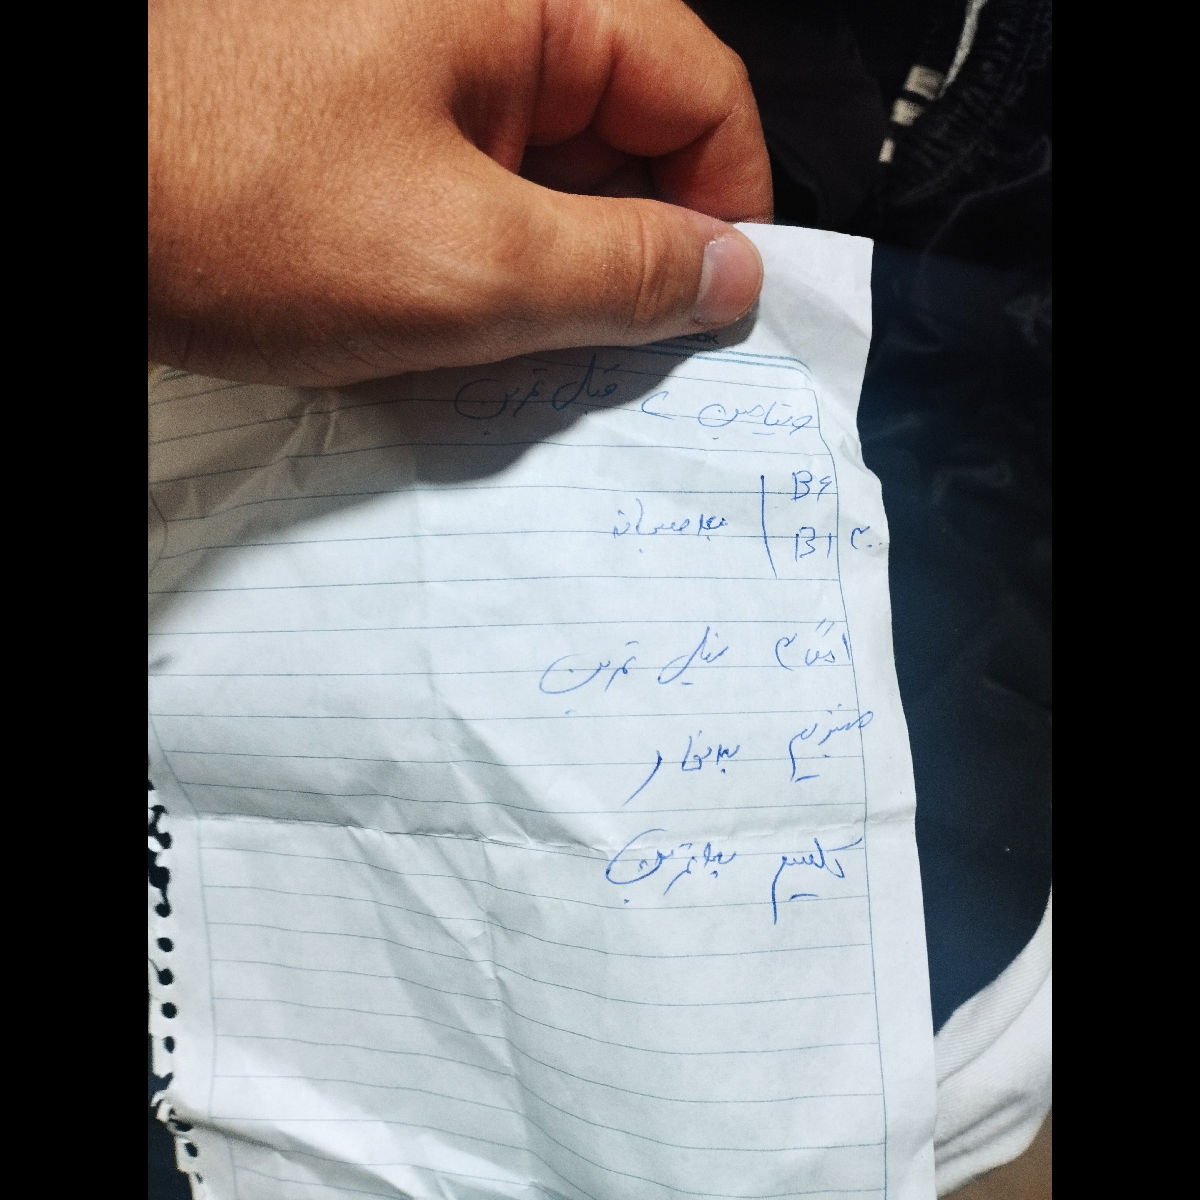 ویتامین C قبل تمرین
B۶
B۱ ۳۰۰
بعد صبحانه
امگا ۳ قبل تمرین
منیزیم بعد نهار
کلسیم بعد تمرین